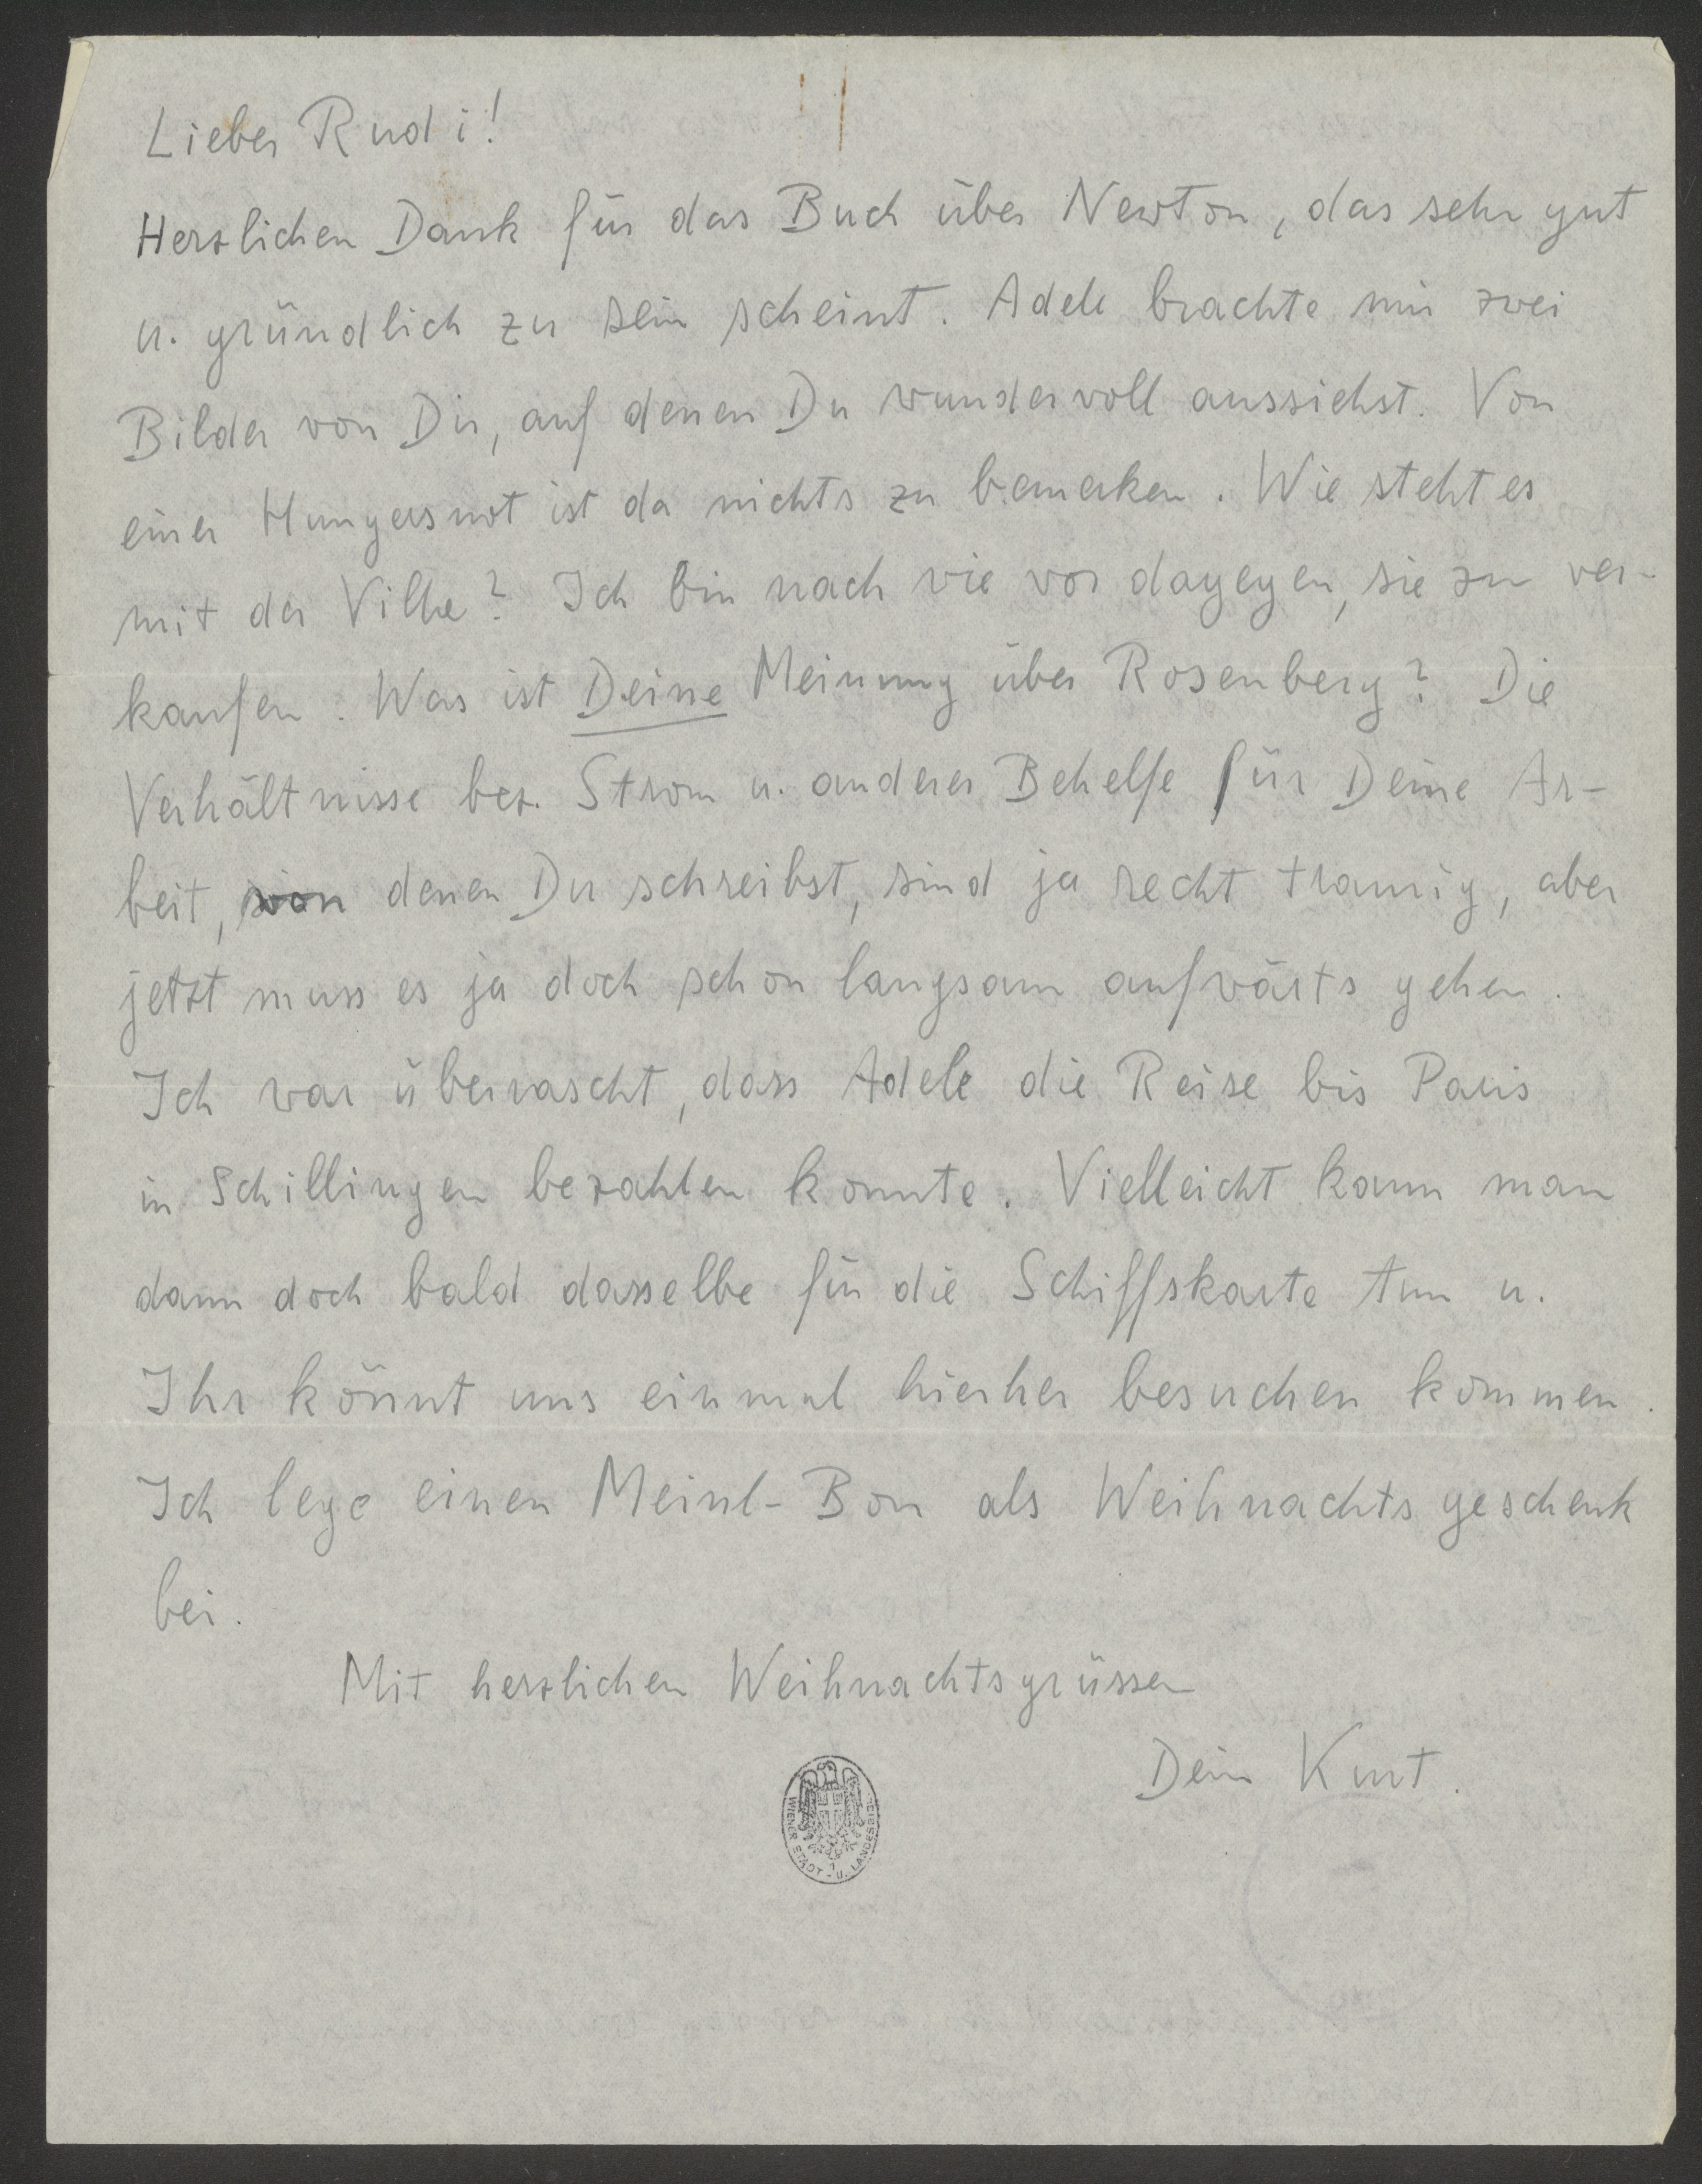 Lieber Rudi!
Herzlichen Dank für das Buch über Newton, das sehr gut
u. gründlich zu sein scheint. Adele brachte mir zwei
Bilder von Dir, auf denen Du wundervoll aussiehst. Von
einer Hungersnot ist da nichts zu bemerken. Wie steht es
mit der Villa? Ich bin nach wie vor dagegen, sie zu ver-
kaufen. Was ist Deine Meinung über Rosenberg? Die
Verhältnisse bez. Strom u. anderer Behelfe für Deine Ar-
beit, von denen Du schreibst, sind ja recht traurig, aber
jetzt muss es ja doch schon langsam aufwärts gehen.
Ich war überrascht, dass Adele die Reise bis Paris
in Schillingen bezahlen konnte. Vielleicht kann man
dann doch bald dasselbe für die Schiffskarte tun u.
Ihr könnt uns einmal hierher besuchen kommen.
Ich lege einen Meinl-Bon als Weihnachtsgeschenk
bei.
Mit herzlichen Weihnachtsgrüssen
Dein Kurt.
WIENER STADT - U. LANDESBIBL.